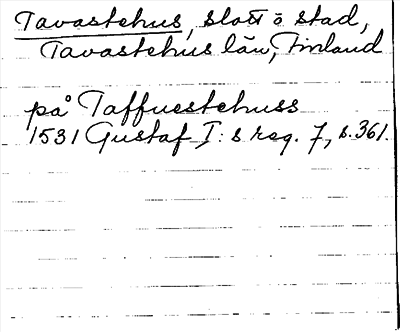 Tavastehus, slott o stad,
Tavastehus län, Finland
på Taffuestehuss
1531 Gustaf I:s reg. 7, s. 361.